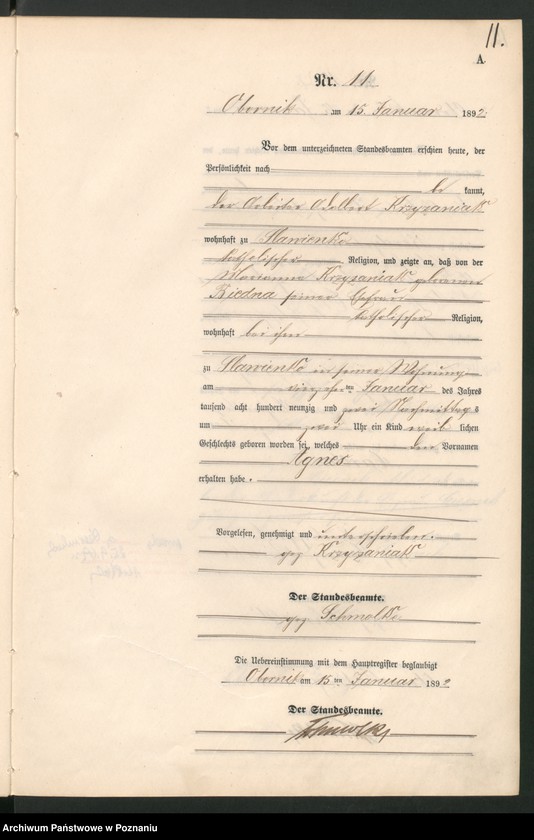 11.
A.
Nr. 11
Obornik am 15. Januar 1892.
Vor dem unterzeichneten Standesbeamten erschien heute, der
Persönlichkeit nach
be kannt,
der Arbeiter Adalbert Krzyzaniak
wohnhaft zu Slawienko
katholischer Religion, und zeigte an, daß von der
Marianna Krzyzaniak geborenen
Biedna seiner Ehefrau
katholischer Religion,
wohnhaft bei ihm
zu Slawienko in seiner Wohnung
am vierzehn ten Januar des Jahres
tausend acht hundert neunzig und zwei Nachmittags
um zwei Uhr ein Kind weib lichen
Geschlechts geboren worden sei, welches den Vornamen
Agnes
erhalten habe.
Vorgelesen, genehmigt und unterschrieben.
gez Krzyzaniak
Der Standesbeamte.
gez Schmolke
Die Uebereinstimmung mit dem Hauptregister beglaubigt
Obornik am 15 ten Januar 1892
Der Standesbeamte.
Schmolke
Archiwum Państwowe w Poznaniu